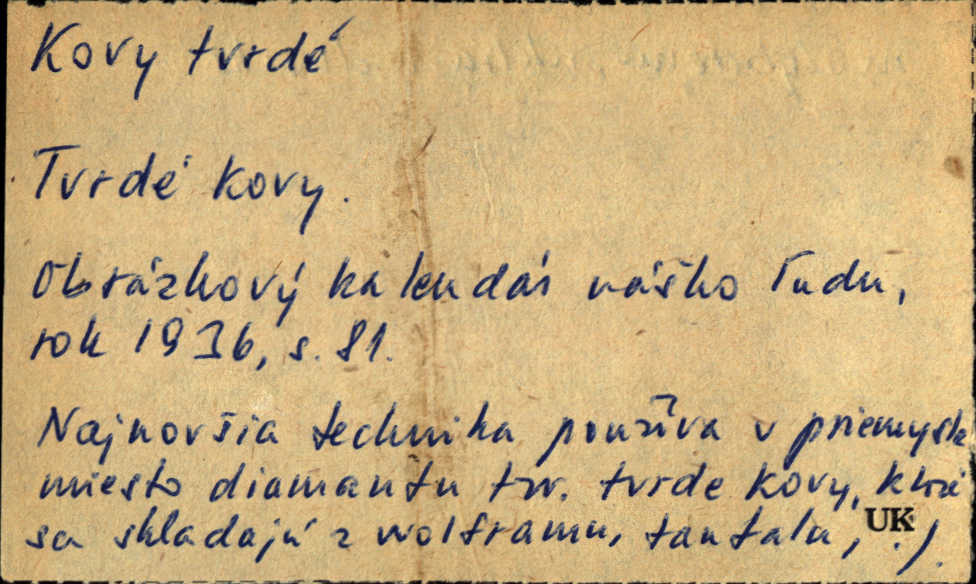 Kovy tvrdé
Tvrdé kovy.
Obrázkový kalendár nášho ľudu,
rok 1936, s. 81.
Najnovšia technika používa v priemysle
miesto diamantu tzv. tvrde kovy, ktoré
sa skladajú z wolframu, tantalu, ./.
UK